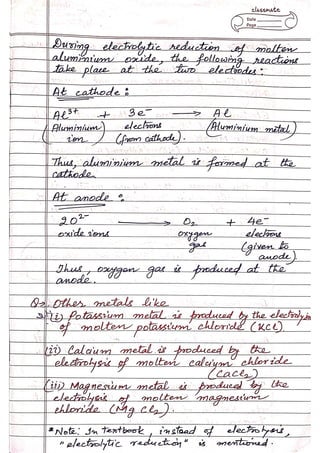 classmate
Date
Page
During electrolytic reduction of molten
aluminium oxide, the following reactions
take place at the two electrodes:
At cathode:
Al³⁺ + 3e⁻ → Al
(Aluminium ion) electrons (from cathode). (Aluminium metal)
Thus, aluminium metal is formed at the
cathode.
At anode:
2O²⁻ → O₂ + 4e⁻
oxide ions oxygen gas electrons (given to anode)
Thus, oxygen gas is produced at the
anode.
Other metals like
(i) Potassium metal is produced by the electrolysis
of molten potassium chloride (KCl).
(ii) Calcium metal is produced by the
electrolysis of molten calcium chloride
(CaCl₂)
(iii) Magnesium metal is produced by the
electrolysis of molten magnesium
chloride (MgCl₂).
*Note: In textbook, instead of electrolysis,
"electrolytic reduction" is mentioned.